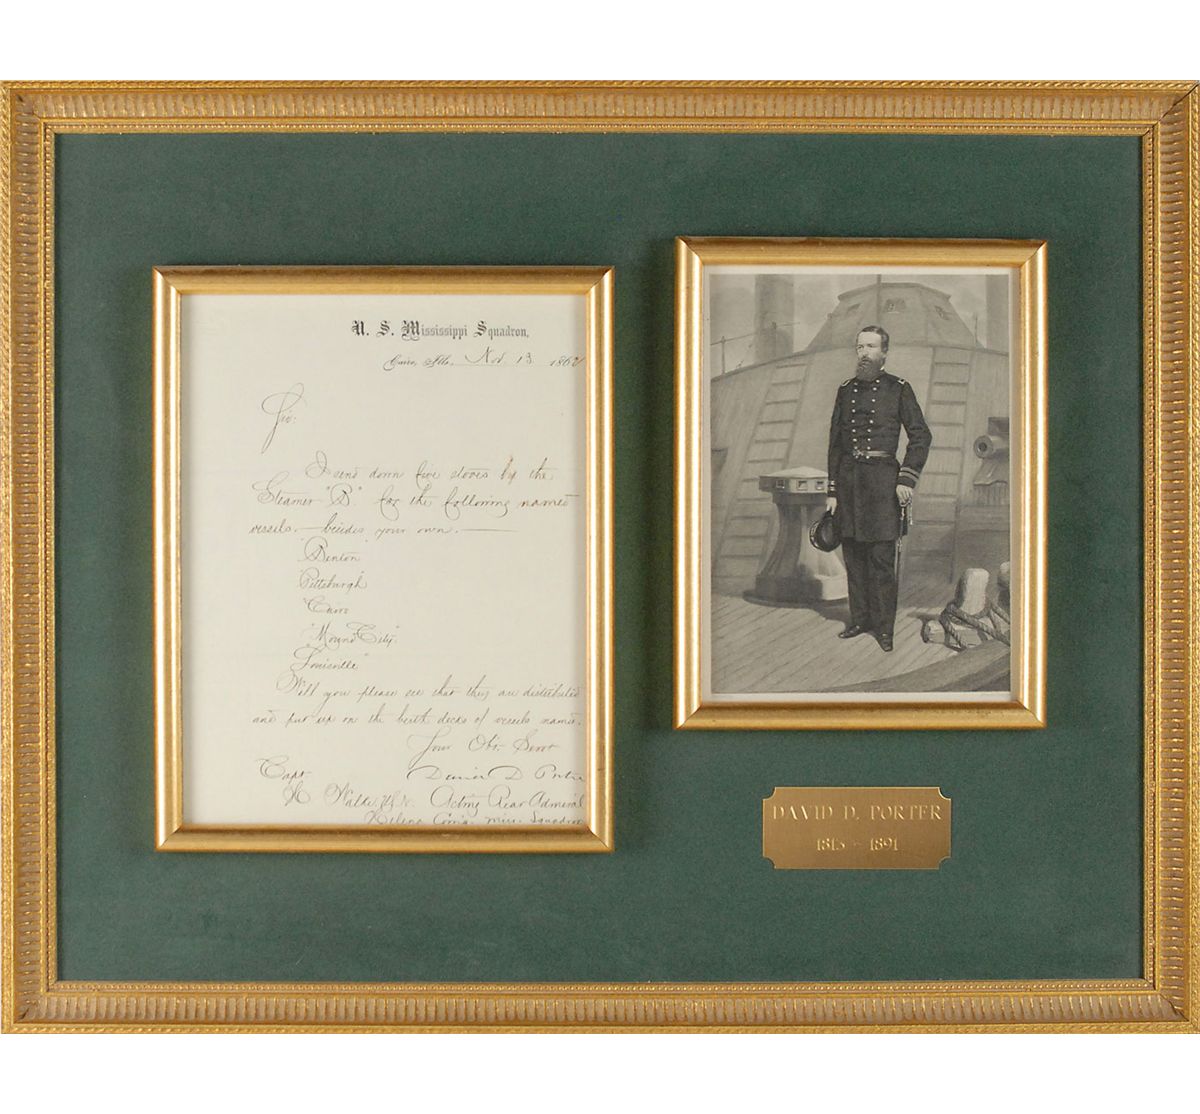 U. S. Mississippi Squadron,
Cairo, Ills. Nov. 13 1862
Sir:
I send down five stoves by the
Steamer "D" for the following named
vessels,—besides your own.—
"Benton"
"Pittsburgh"
"Cairo"
"Mound City"
"Louisville"
Will you please see that they are distributed
and put up on the berth decks of vessels named.
Your Obt. Servt
David D. Porter
Capt
H. Walke, U.S.N. Acting Rear Admiral
Helena Comg. Miss. Squadron
DAVID D. PORTER
1813 - 1891